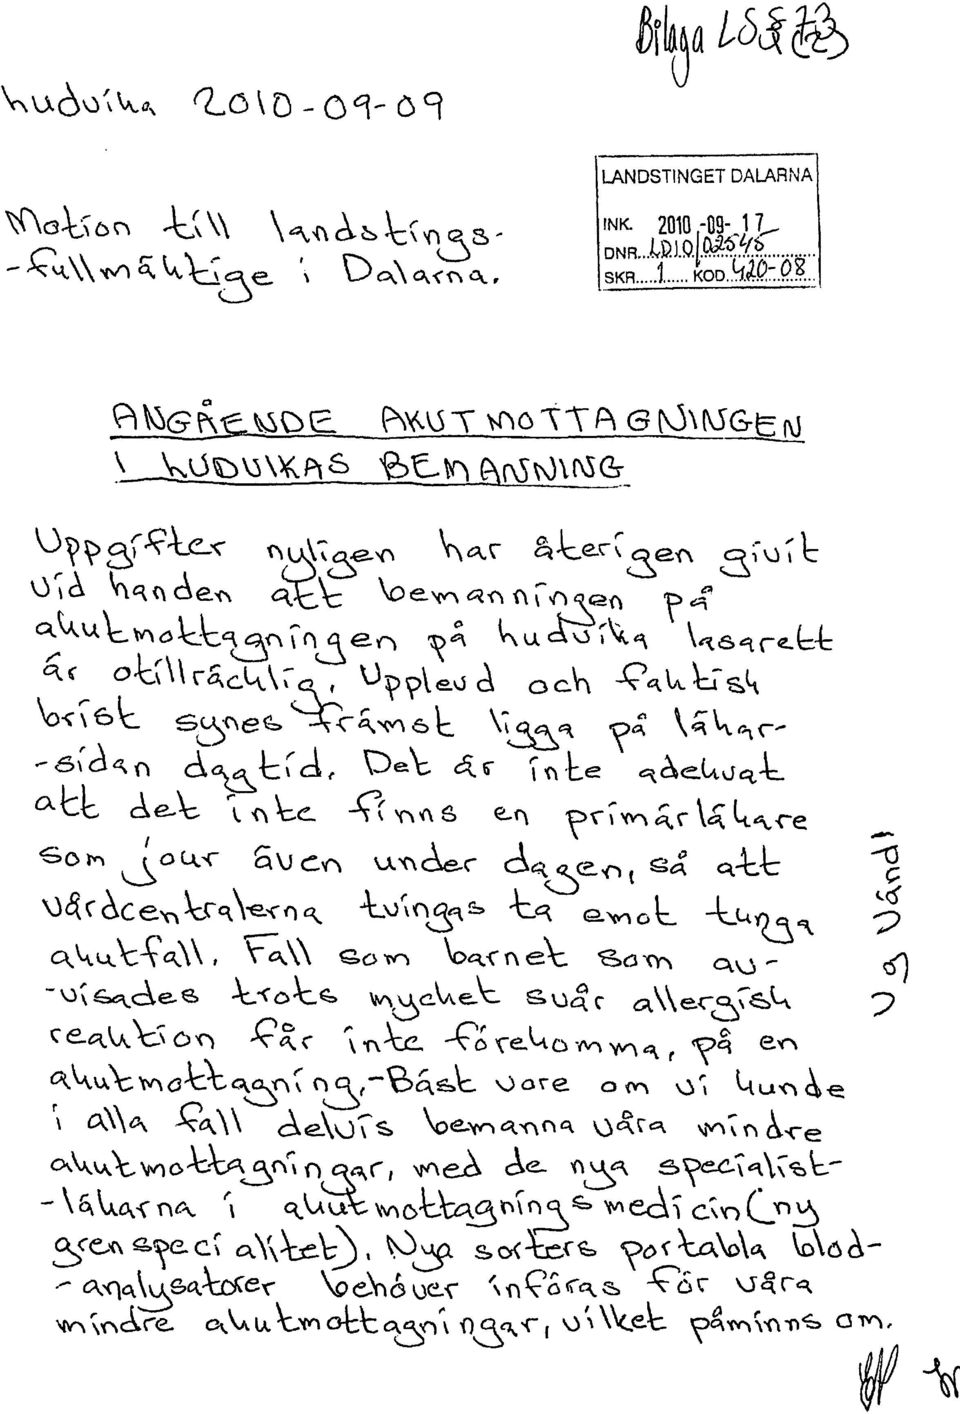 Bilaga LS § 73
Ludvika 2010-09-09
LANDSTINGET DALARNA
INK. 2010-09-17
DNR...LD10/02545
SKR.....1...... KOD..420-08
Motion till landstings-
-fullmäktige i Dalarna.
ANGÅENDE AKUTMOTTAGNINGEN
I LUDVIKAS BEMANNING
Uppgifter nyligen har återigen givit
vid handen att bemanningen på
akutmottagningen på Ludvika lasarett
är otillräcklig. Upplevd och faktisk
brist synes främst ligga på läkar-
-sidan dagtid. Det är inte adekvat
att det inte finns en primärläkare
som jour även under dagen, så att
vårdcentralerna tvingas ta emot tunga
akutfall. Fall som barnet som av-
-visades trots mycket svår allergisk
reaktion får inte förekomma, på en
akutmottagning.-Bäst vore om vi kunde
i alla fall delvis bemanna våra mindre
akutmottagningar, med de nya specialist-
-läkarna i akutmottagningsmedicin(ny
grenspecialitet). Nya sorters portabla blod-
-analysatorer behöver införas för våra
mindre akutmottagningar, vilket påminns om.
v g vänd!